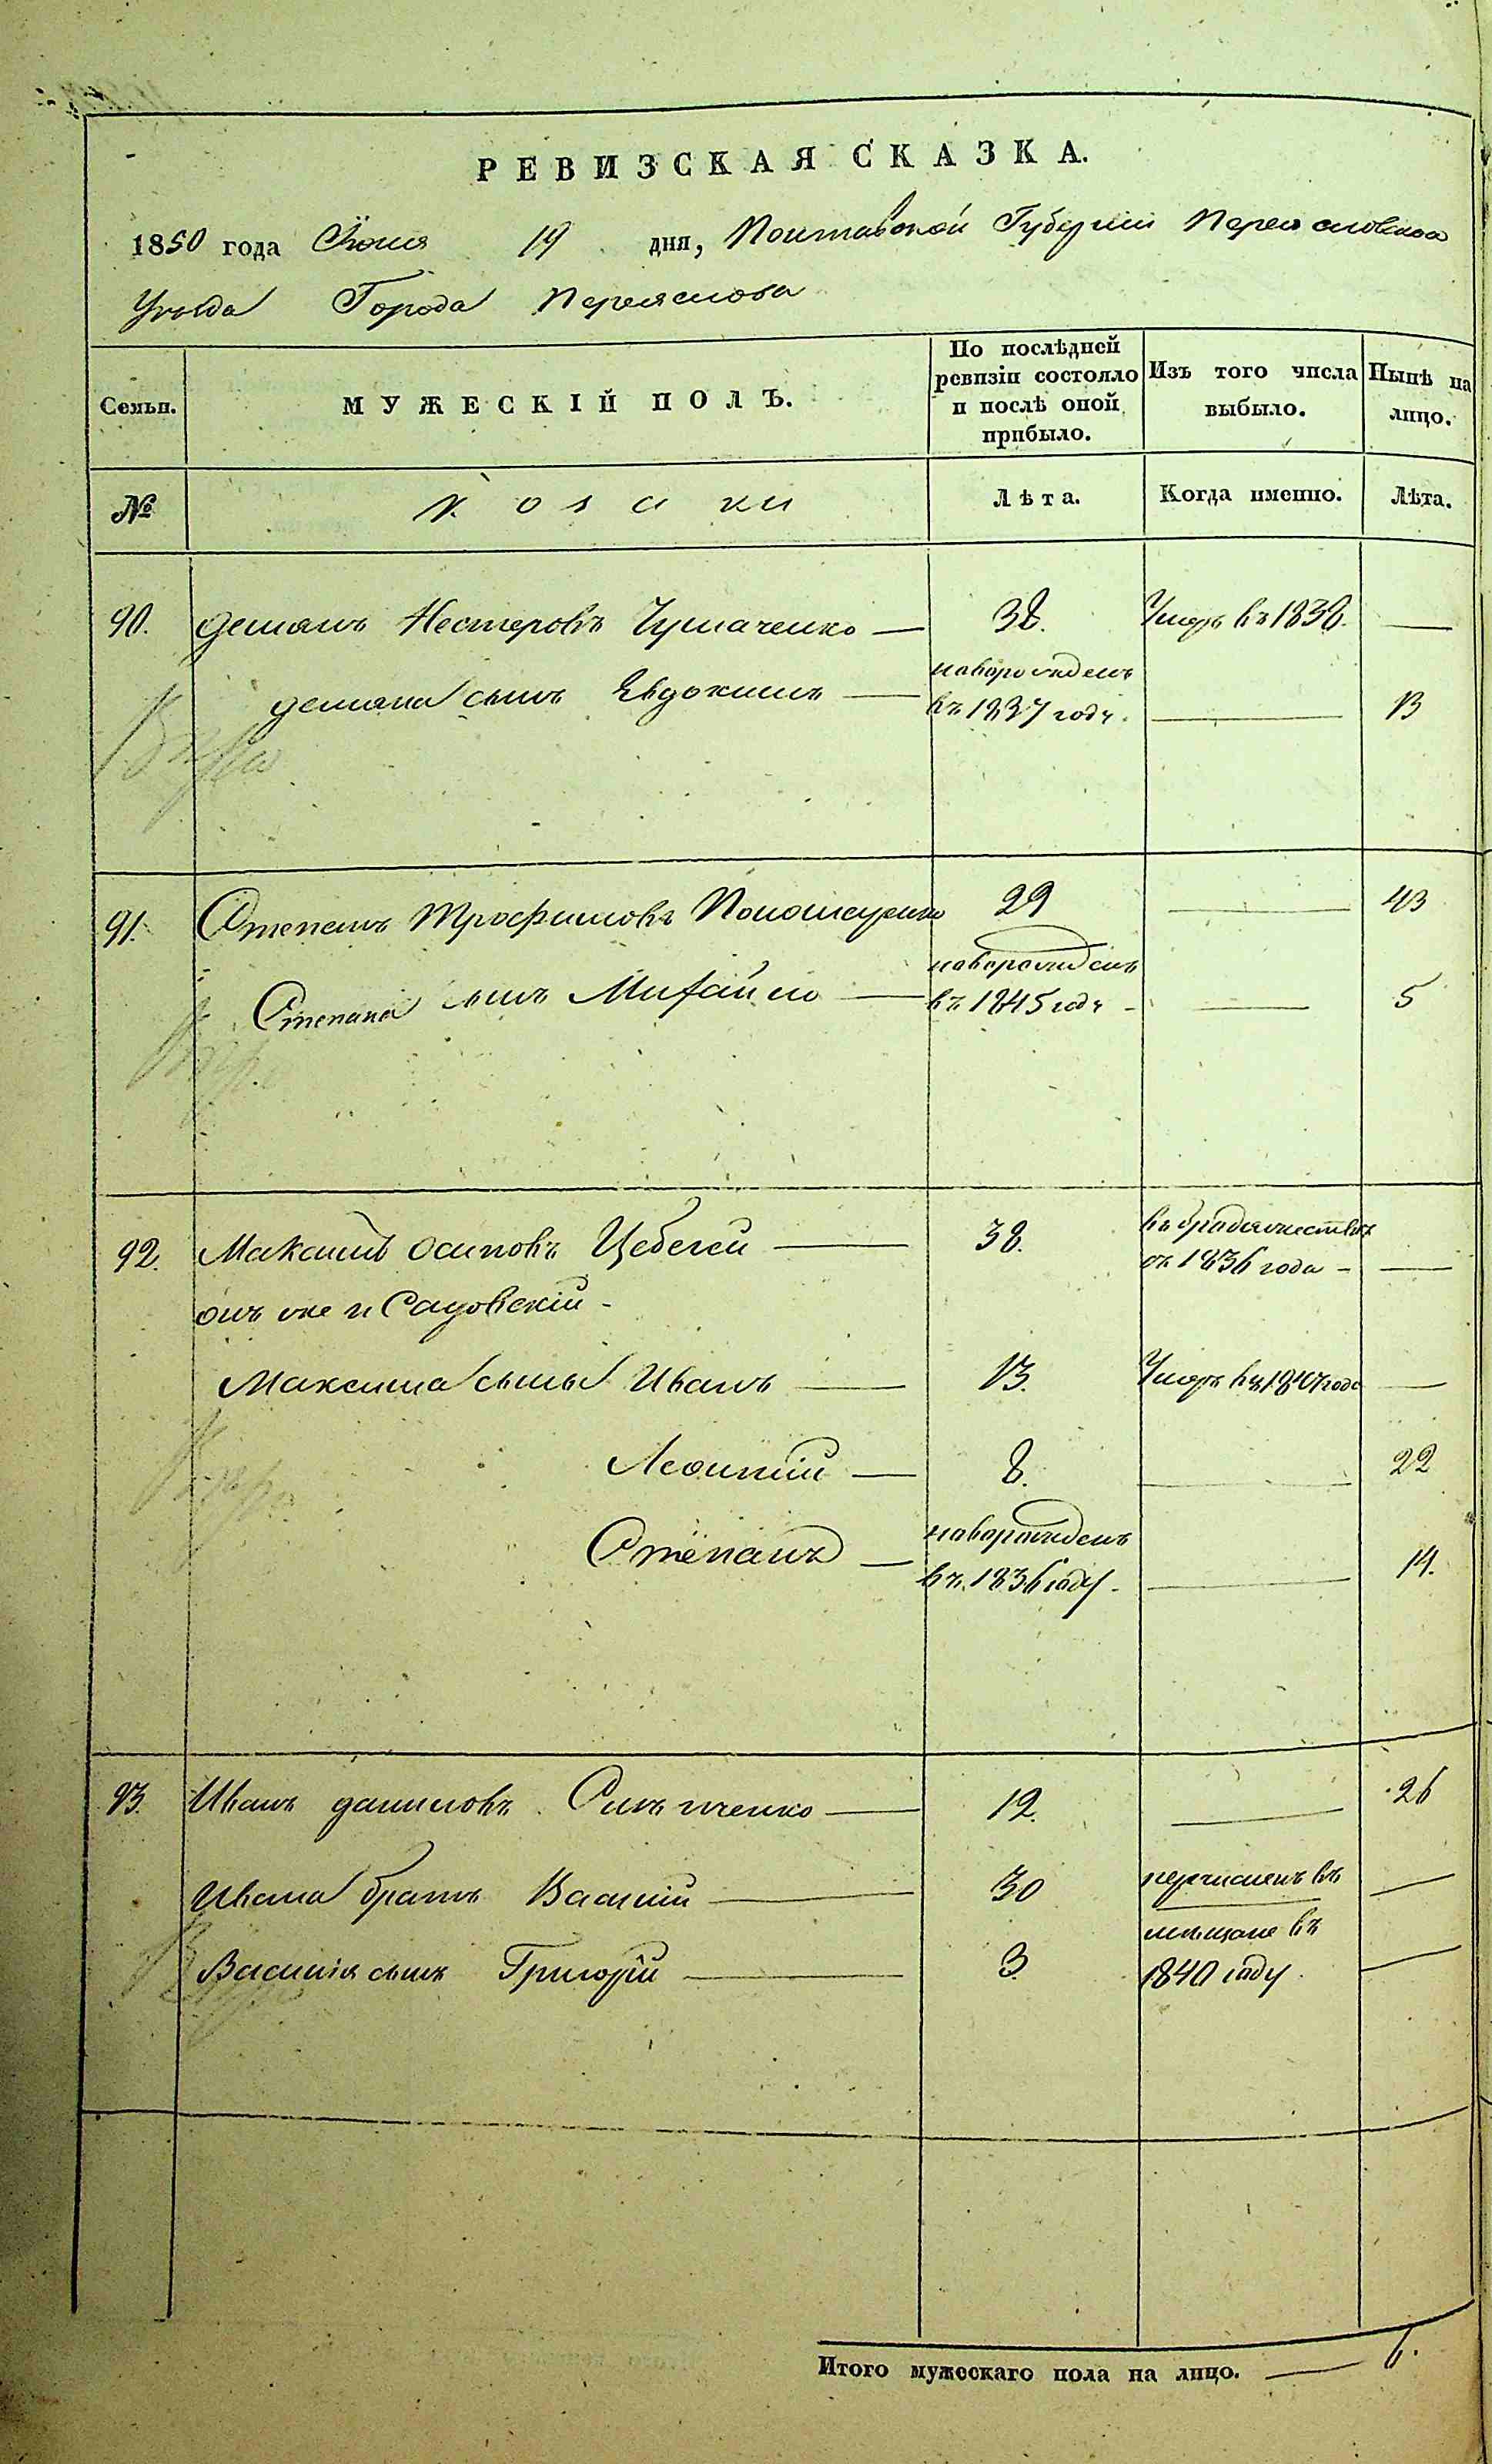 РЕВИЗСКАЯ СКАЗКА.
1850 года Июня 19 дня, Полтавской Губернии Переяславскаго
Уезда Города Переяслова
Семьи. МУЖЕСКІЙ ПОЛЪ. По послѣдней ревизіи состояло и послѣ оной прибыло. Изъ того числа выбыло. Нынѣ на лицо.
№ Козаки Лѣта. Когда именно. Лѣта.
90. Демянъ Нестеровъ Чумаченко — 38. Умеръ въ 1838. —
новорожденъ
Демяна сынъ Евдокимъ — въ 1837 году. — 13
91. Степанъ Трофимовъ Пономаренко 29 — 43
новорожденъ
Степана сынъ Михайло — въ 1845 году — — 5
92. Максимъ Осиповъ Цебегей — 38. въ бродяжествѣ
съ 1836 года — —
онъ же и Садовскій -
Максима сыны Иванъ — 13. Умеръ въ 1847 году —
Леонтій — 8. — 22
новорожденъ
Степанъ — въ 1836 году - — 14.
93. Иванъ Даниловъ — 12. — 26
Ивана братъ Василій — 30 перечисленъ въ —
мещане въ
Василія сынъ Григорій — 3 1840 году. —
Итого мужескаго пола на лицо. — 6.